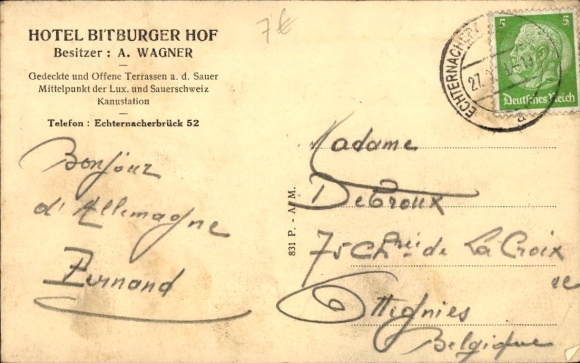 HOTEL BITBURGER HOF
Besitzer : A. WAGNER
Gedeckte und Offene Terrassen a. d. Sauer
Mittelpunkt der Lux. und Sauerschweiz
Kanustation
Telefon : Echternacherbrück 52
7€
Bonjour
d'Allemagne
Fernand
831 P. - A. M.
ECHTERNACHER
27.
a
5 5
Deutsches Reich
Madame
DeCroux
75 Chée de La Croix
Ottignies
Belgique